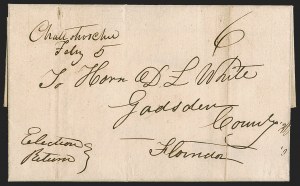 Chattahoochee
Feby 5
6
To Honr D L White
Gadsden
County
Florida
Election
Return